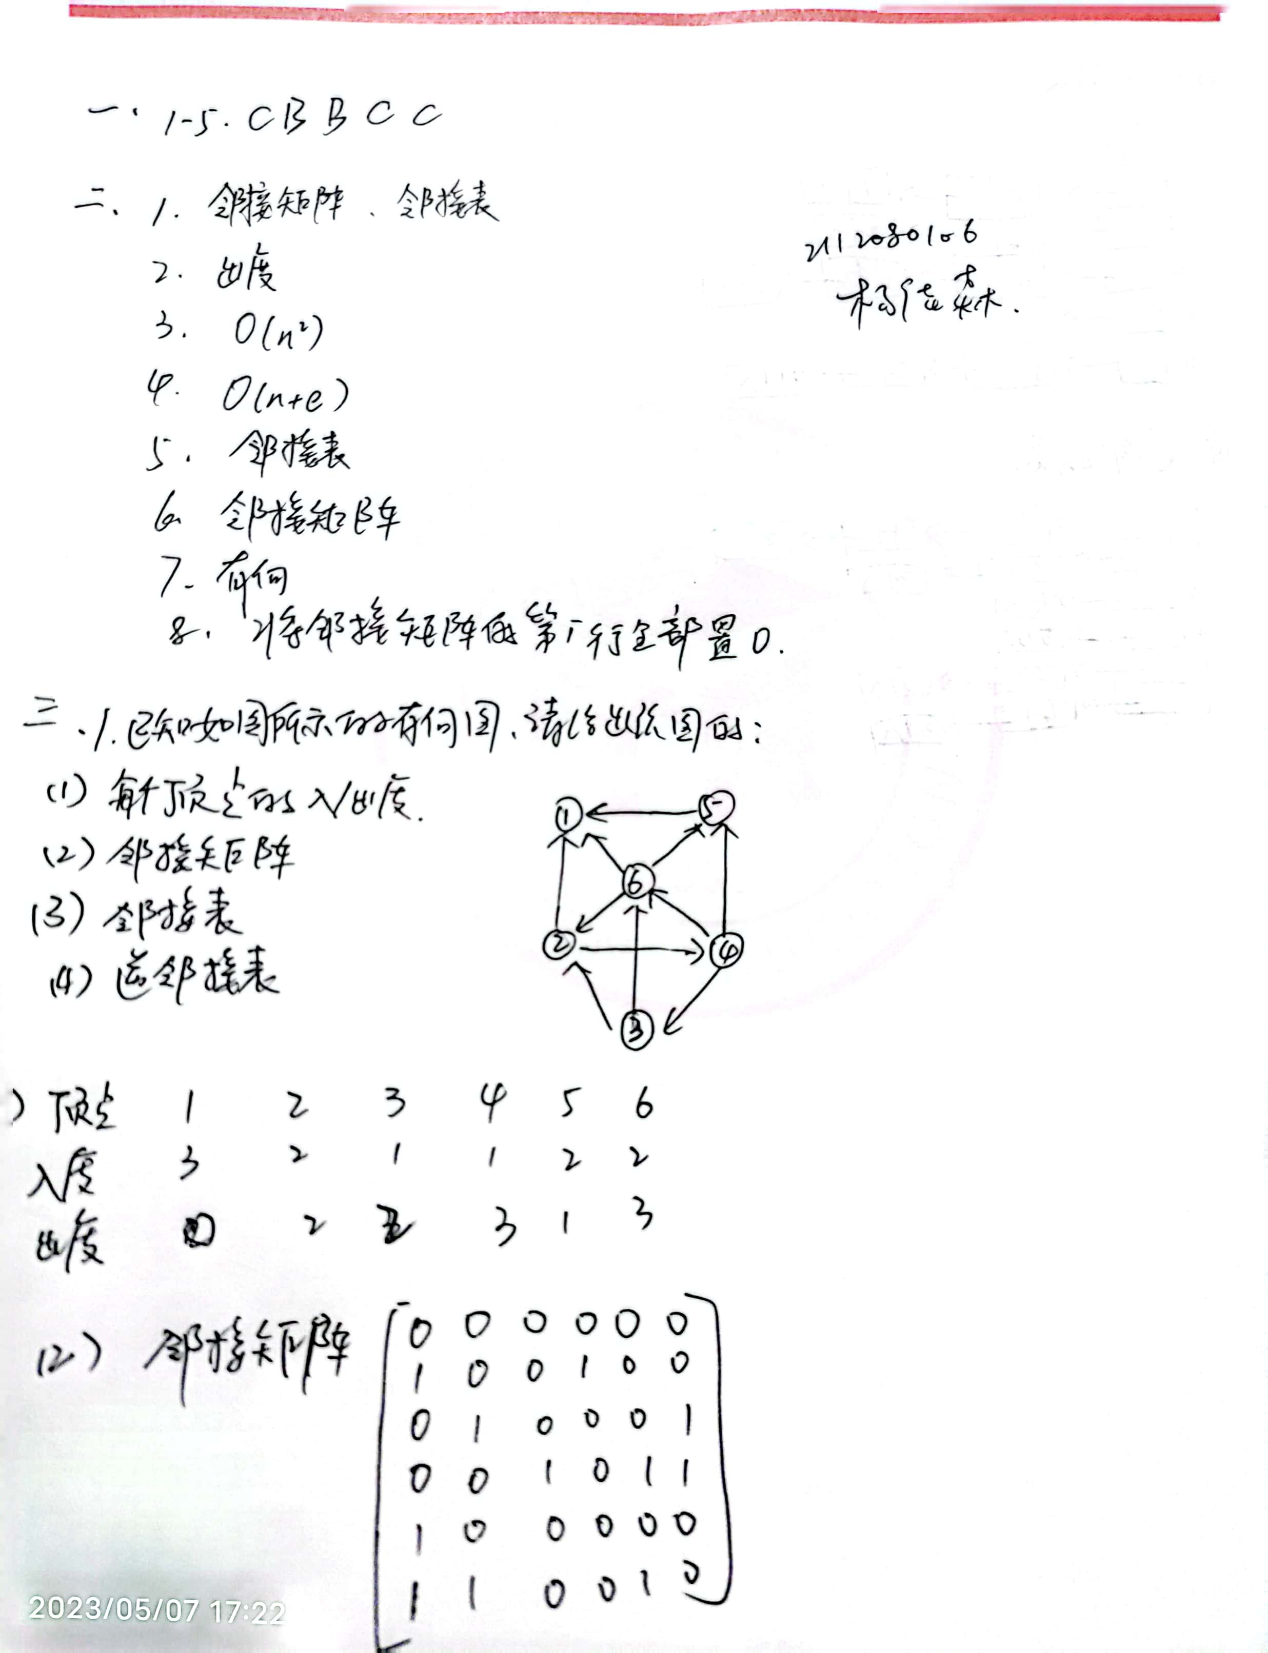 一、1-5. C B B C C
二、1. 邻接矩阵、邻接表
2. 出度
3. O(n²)
4. O(n+e)
5. 邻接表
6. 邻接矩阵
7. 有向
8. 将邻接矩阵的第i行全部置0.
2112080106
杨德森.
三、1.已知如图所示的有向图,请给出该图的:
(1) 每个顶点的入/出度.
(2) 邻接矩阵
(3) 邻接表
(4) 逆邻接表
1 5
6
2 4
3
) 顶点 1 2 3 4 5 6
入度 3 2 1 1 2 2
出度 0 2 2 3 1 3
(2) 邻接矩阵
0 0 0 0 0 0
1 0 0 1 0 0
0 1 0 0 0 1
0 0 1 0 1 1
1 0 0 0 0 0
1 1 0 0 1 0
2023/05/07 17:22